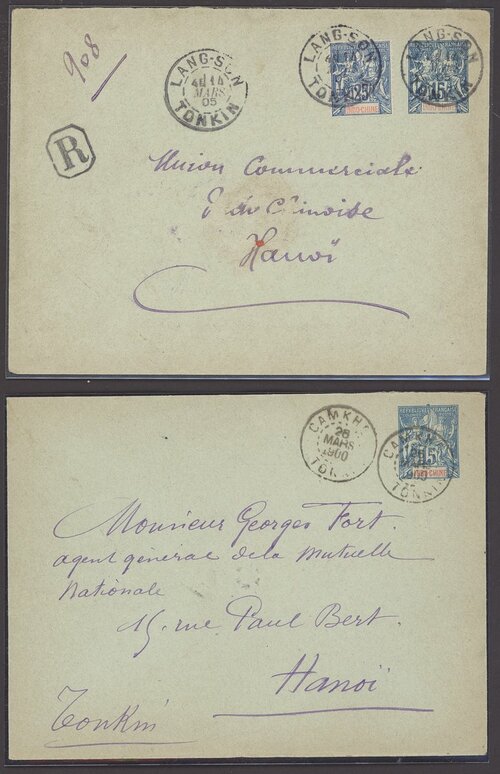 908
LANG-SON
MARS
05
TONKIN
LANG-SON
TONKIN
25
INDO-CHINE
LANG-SON
15
R
Union Commerciale
Hanoï
CAMKH
26
MARS
1900
TONKIN
RÉPUBLIQUE FRANÇAISE
15
INDO-CHINE
CAMKH
1900
TONKIN
Monsieur Georges Fort.
agent général de la Mutuelle
Nationale
15, rue Paul Bert.
Hanoï
Tonkin